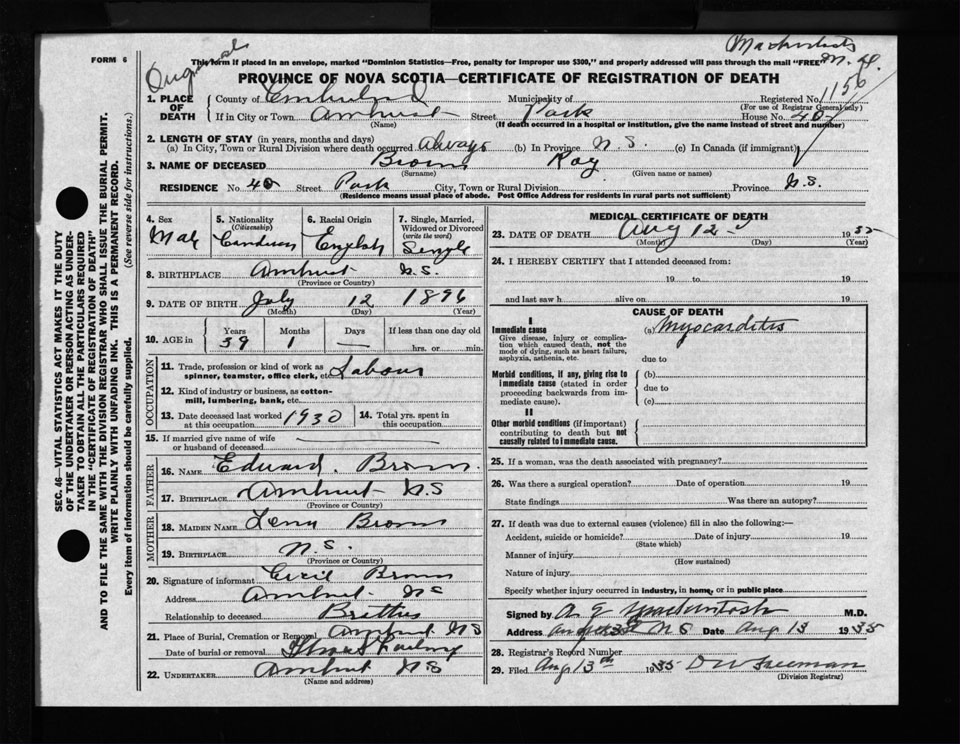 Original
Mackintosh
M.D.
FORM 6
This form if placed in an envelope, marked "Dominion Statistics—Free, penalty for improper use $300," and properly addressed will pass through the mail "FREE"
PROVINCE OF NOVA SCOTIA—CERTIFICATE OF REGISTRATION OF DEATH
1156
1. PLACE OF DEATH County of Cumberland Municipality of Registered No.
(For use of Registrar General only)
If in City or Town Amherst Street Park House No. 40
(Name) (If death occurred in a hospital or institution, give the name instead of street and number)
2. LENGTH OF STAY (in years, months and days)
(a) In City, Town or Rural Division where death occurred Always (b) In Province N.S. (c) In Canada (if immigrant)
3. NAME OF DECEASED Brown Ray
(Surname) (Given name or names)
RESIDENCE No. 40 Street Park City, Town or Rural Division Province N.S.
(Residence means usual place of abode. Post Office Address for residents in rural parts not sufficient)
SEC. 46—VITAL STATISTICS ACT MAKES IT THE DUTY
OF THE UNDERTAKER OR PERSON ACTING AS UNDER-
TAKER TO OBTAIN ALL THE PARTICULARS REQUIRED
IN THE "CERTIFICATE OF REGISTRATION OF DEATH"
AND TO FILE THE SAME WITH THE DIVISION REGISTRAR WHO SHALL ISSUE THE BURIAL PERMIT.
WRITE PLAINLY WITH UNFADING INK. THIS IS A PERMANENT RECORD.
Every item of information should be carefully supplied. (See reverse side for instructions.)
4. Sex 5. Nationality (Citizenship) 6. Racial Origin 7. Single, Married, Widowed or Divorced (write the word)
Male Canadian English Single
8. BIRTHPLACE Amherst N.S.
(Province or Country)
9. DATE OF BIRTH July 12 1896
(Month) (Day) (Year)
10. AGE in Years Months Days If less than one day old
39 1 — hrs. or min.
OCCUPATION
11. Trade, profession or kind of work as spinner, teamster, office clerk, etc. Labour
12. Kind of industry or business, as cotton-mill, lumbering, bank, etc.
13. Date deceased last worked at this occupation 1930 14. Total yrs. spent in this occupation
15. If married give name of wife or husband of deceased
FATHER
16. NAME Edward Brown
17. BIRTHPLACE Amherst N.S
(Province or Country)
MOTHER
18. MAIDEN NAME Lena Brown
19. BIRTHPLACE N.S.
(Province or Country)
20. Signature of informant Cecil Brown
Address Amherst NS
Relationship to deceased
21. Place of Burial, Cremation or Removal Amherst NS
Date of burial or removal
22. UNDERTAKER Amherst NS
(Name and address)
MEDICAL CERTIFICATE OF DEATH
23. DATE OF DEATH Aug 12 1935
(Month) (Day) (Year)
24. I HEREBY CERTIFY that I attended deceased from:
19 to 19
and last saw h alive on 19
CAUSE OF DEATH
I
Immediate cause (a) Myocarditis
Give disease, injury or complication which caused death, not the mode of dying, such as heart failure, asphyxia, asthenia, etc. due to
Morbid conditions, if any, giving rise to immediate cause (stated in order proceeding backwards from immediate cause). (b)
due to
(c)
II
Other morbid conditions (if important) contributing to death but not causally related to immediate cause.
25. If a woman, was the death associated with pregnancy?
26. Was there a surgical operation? Date of operation 19
State findings Was there an autopsy?
27. If death was due to external causes (violence) fill in also the following:—
Accident, suicide or homicide? Date of injury 19
(State which)
Manner of injury
(How sustained)
Nature of injury
Specify whether injury occurred in industry, in home, or in public place
Signed by A E Mackintosh M.D.
Address Amherst N S Date Aug 13 1935
28. Registrar's Record Number
29. Filed Aug 13th 1935 D W Freeman
(Division Registrar)